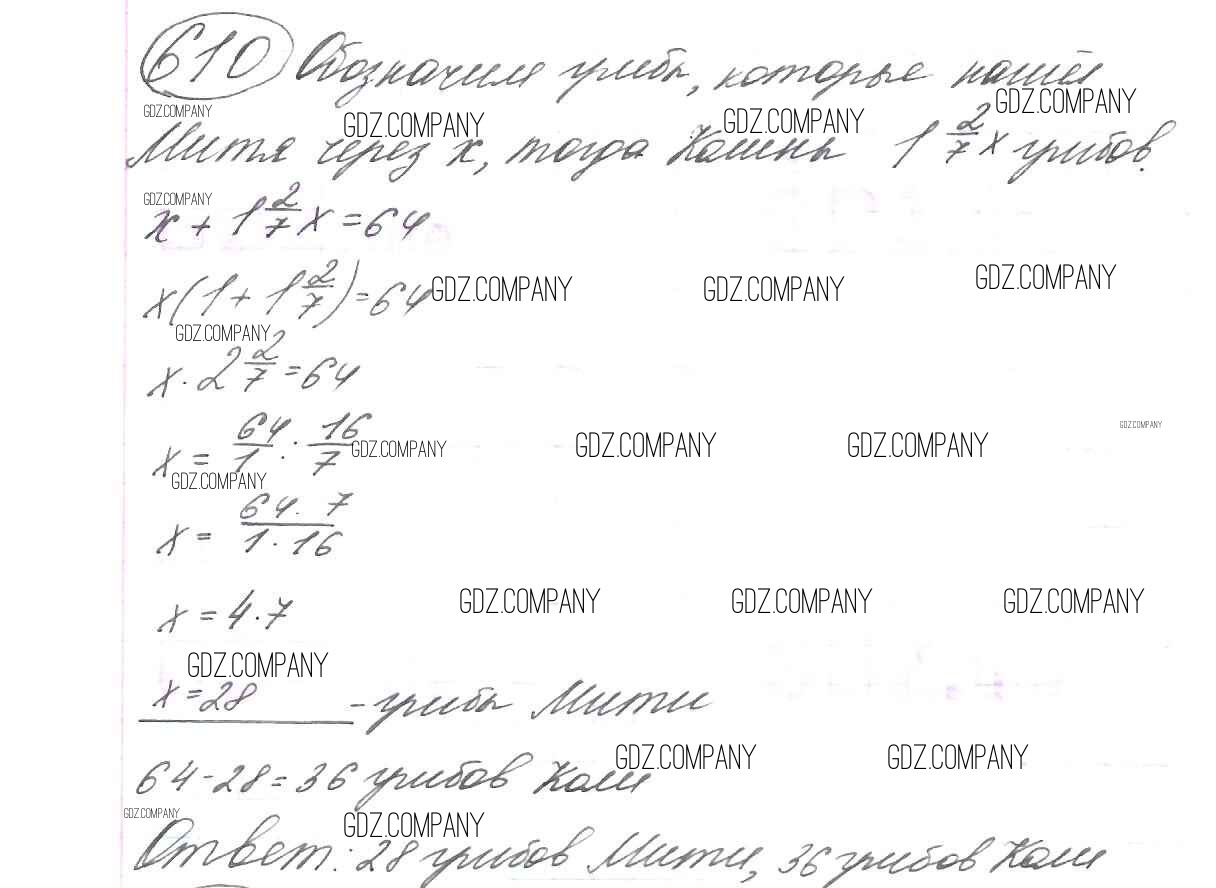 610 Обозначим грибы, которые нашёл
GDZ.COMPANY GDZ.COMPANY GDZ.COMPANY GDZ.COMPANY
Митя через x, тогда Колины 1 2/7 x грибов.
GDZ.COMPANY
x + 1 2/7 x = 64
x(1 + 1 2/7) = 64 GDZ.COMPANY GDZ.COMPANY GDZ.COMPANY
GDZ.COMPANY
x · 2 2/7 = 64
x = 64/1 : 16/7 GDZ.COMPANY GDZ.COMPANY GDZ.COMPANY GDZ.COMPANY
GDZ.COMPANY
x = 64 · 7/1 · 16
x = 4 · 7 GDZ.COMPANY GDZ.COMPANY GDZ.COMPANY
GDZ.COMPANY
x = 28 - грибы Мити
GDZ.COMPANY GDZ.COMPANY
64 - 28 = 36 грибов Коли
GDZ.COMPANY GDZ.COMPANY
Ответ: 28 грибов Мити, 36 грибов Коли